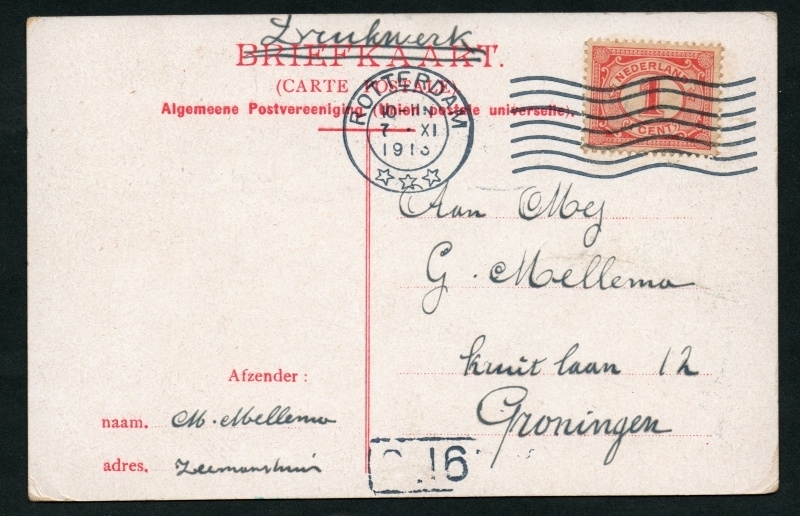 Drukwerk
BRIEFKAART.
(CARTE POSTALE)
Algemeene Postvereeniging (Union postale universelle).
ROTTERDAM
10-11 N
7 · XI
1913
NEDERLAND
1
CENT
Aan Mej
G. Mellema
kruitlaan 12
Groningen
Afzender :
naam. M. Mellema
adres. Zeemanshuis
16